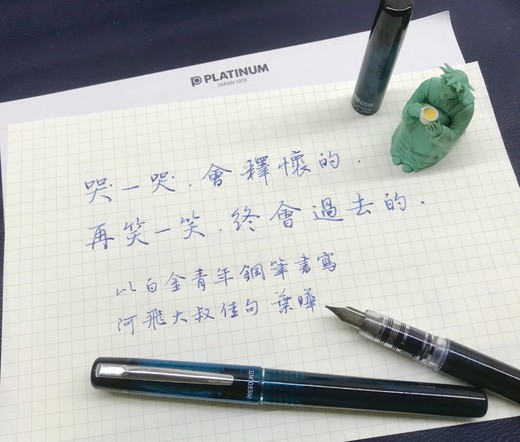 PLATINUM
JAPAN 1919
哭一哭，會釋懷的．
再笑一笑，終會過去的．
以白金青年鋼筆書寫
阿飛大叔佳句 葉曄
PREFOUNTE